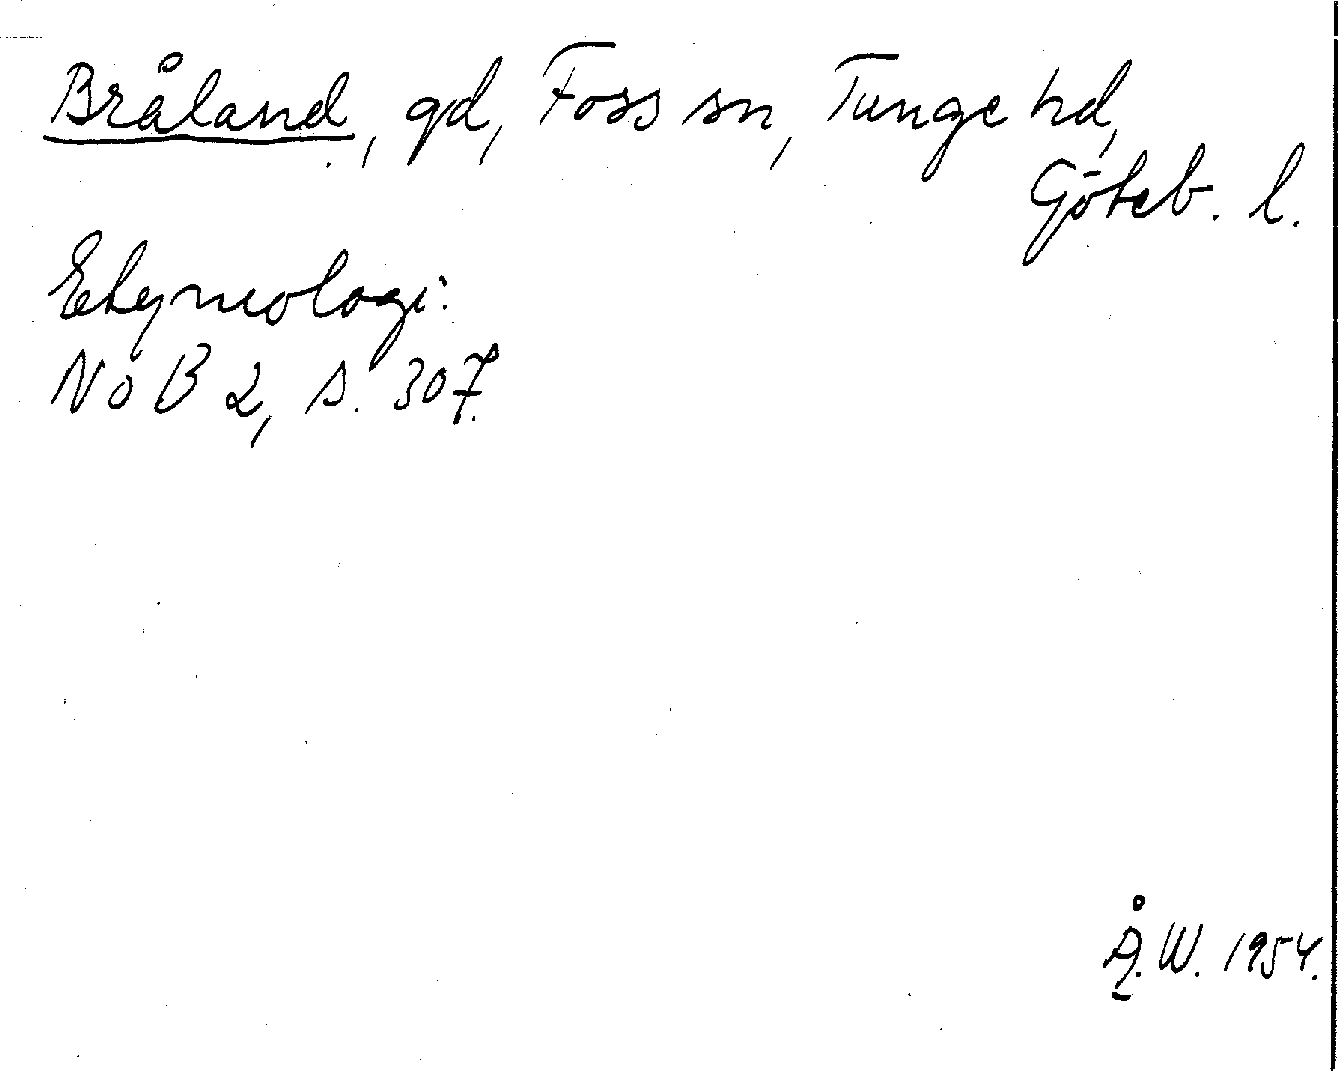 Bråland, gd, Foss sn, Tunge hd,
Göteb. l.
Etymologi:
NoB 2, s. 307.
Å.W. 1954.